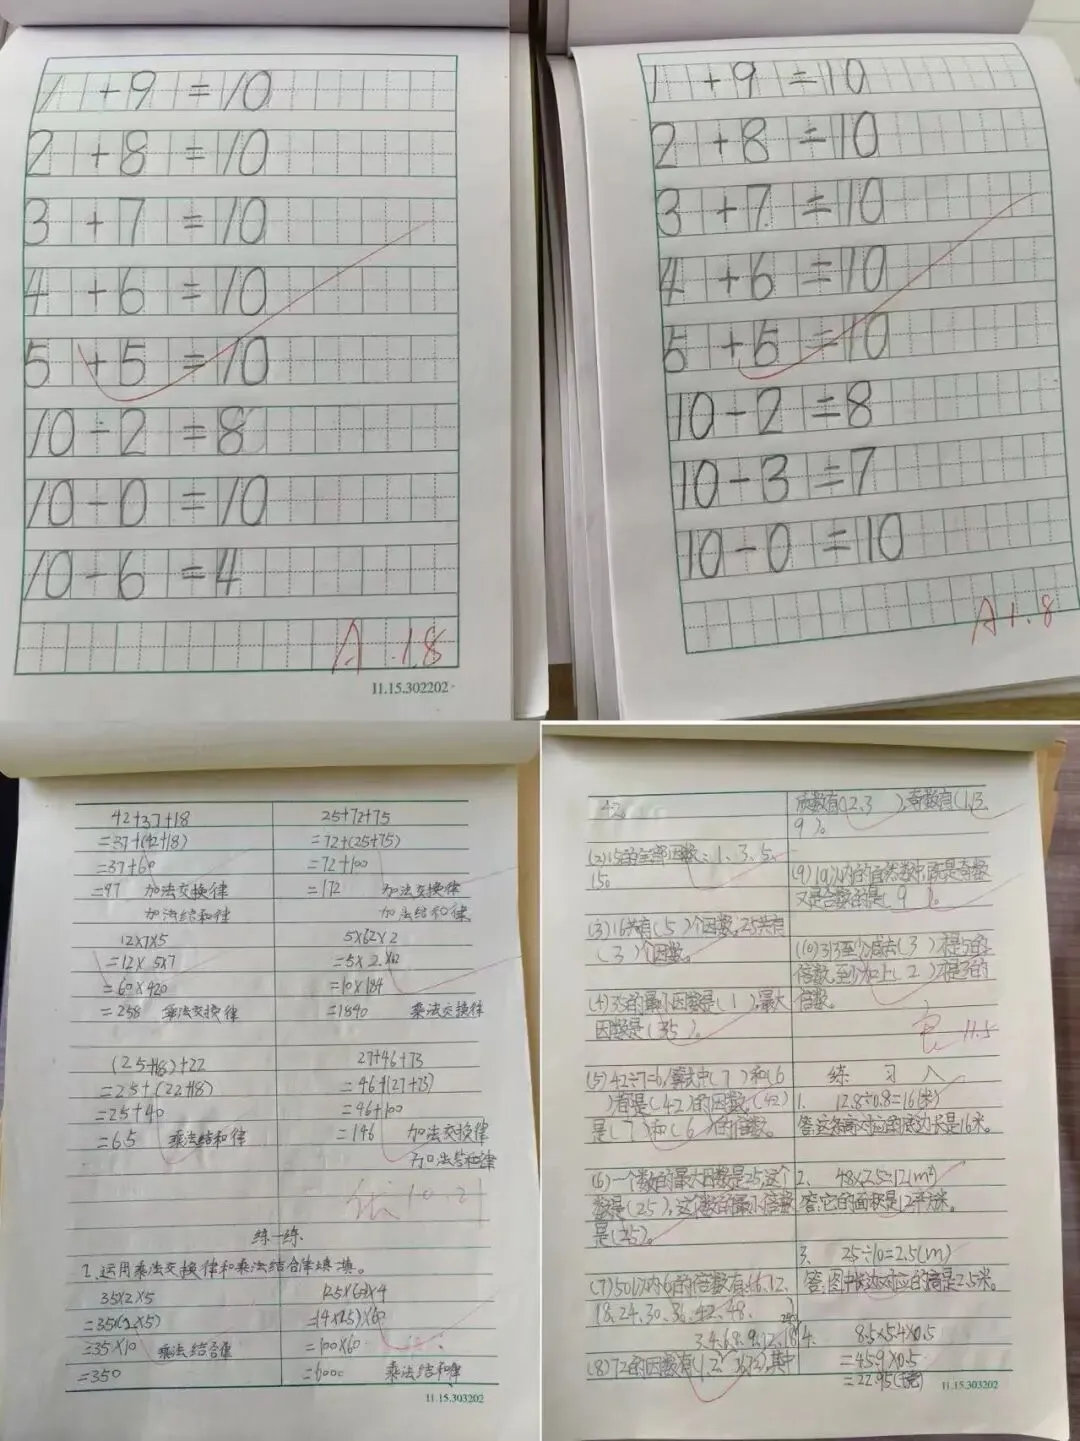 1+9=10
2+8=10
3+7=10
4+6=10
5+5=10
10-2=8
10-0=10
10-6=4
A 1.8
11.15.302202
1+9=10
2+8=10
3+7=10
4+6=10
5+5=10
10-2=8
10-3=7
10-0=10
A 1.8
42+37+18
=37+(42+18)
=37+60
=97 加法交换律
加法结和律
25+72+75
=72+(25+75)
=72+100
=172 加法交换律
加法结和律
12×7×5
=12×5×7
=60×420
=258 乘法交换律
5×62×2
=5×2×62
=10×184
=1840 乘法交换律
(25+18)+22
=25+(22+18)
=25+40
=6.5 乘法结和律
27+46+73
=46+(27+73)
=46+100
=146 加法交换律
加法结和律
优 10.21
练一练
1、运用乘法交换律和乘法结合律填填。
35×2×5
=35×(2×5)
=35×10 乘法结合律
=350
125×60×4
=(4×25)×60
=100×60
=6000 乘法结和律
11.15.303202
42。
(2)15的全部因数:1、3、5、
15。
(3)16共有(5)个因数,25共有
(3)个因数。
(4)35的最小因数是(1),最大
因数是(35)。
(5)42÷7=6,算式中(7)和(6
)都是(42)的因数,(42)
是(7)和(6)的倍数。
(6)一个数的最大因数是25,这个
数是(25),这个数的最小倍数
是(25)。
(7)50以内6的倍数有:(6、12、
18、24、30、36、42、48、)
3、4、6、8、9、12、18
(8)72的因数有(1、2 36、72),其中
质数有(2、3),奇数有(1、3、
9)。
(9)10以内的自然数中,既是奇数
又是合数的是(9)。
(10)313至少减去(3)才是5的
倍数,至少加上(2)才是3的
倍数。
11.5
练习八
1. 12.8÷0.8=16(米)
答:这条高对应的底边长是16米。
2、 4.8×2.5=12(m²)
答:它的面积是12平方米。
3. 25÷10=2.5(m)
答:图中长边对应的高是2.5米。
4. 8.5×5.4×0.5
=45.9×0.5
=22.95
11.15.303202